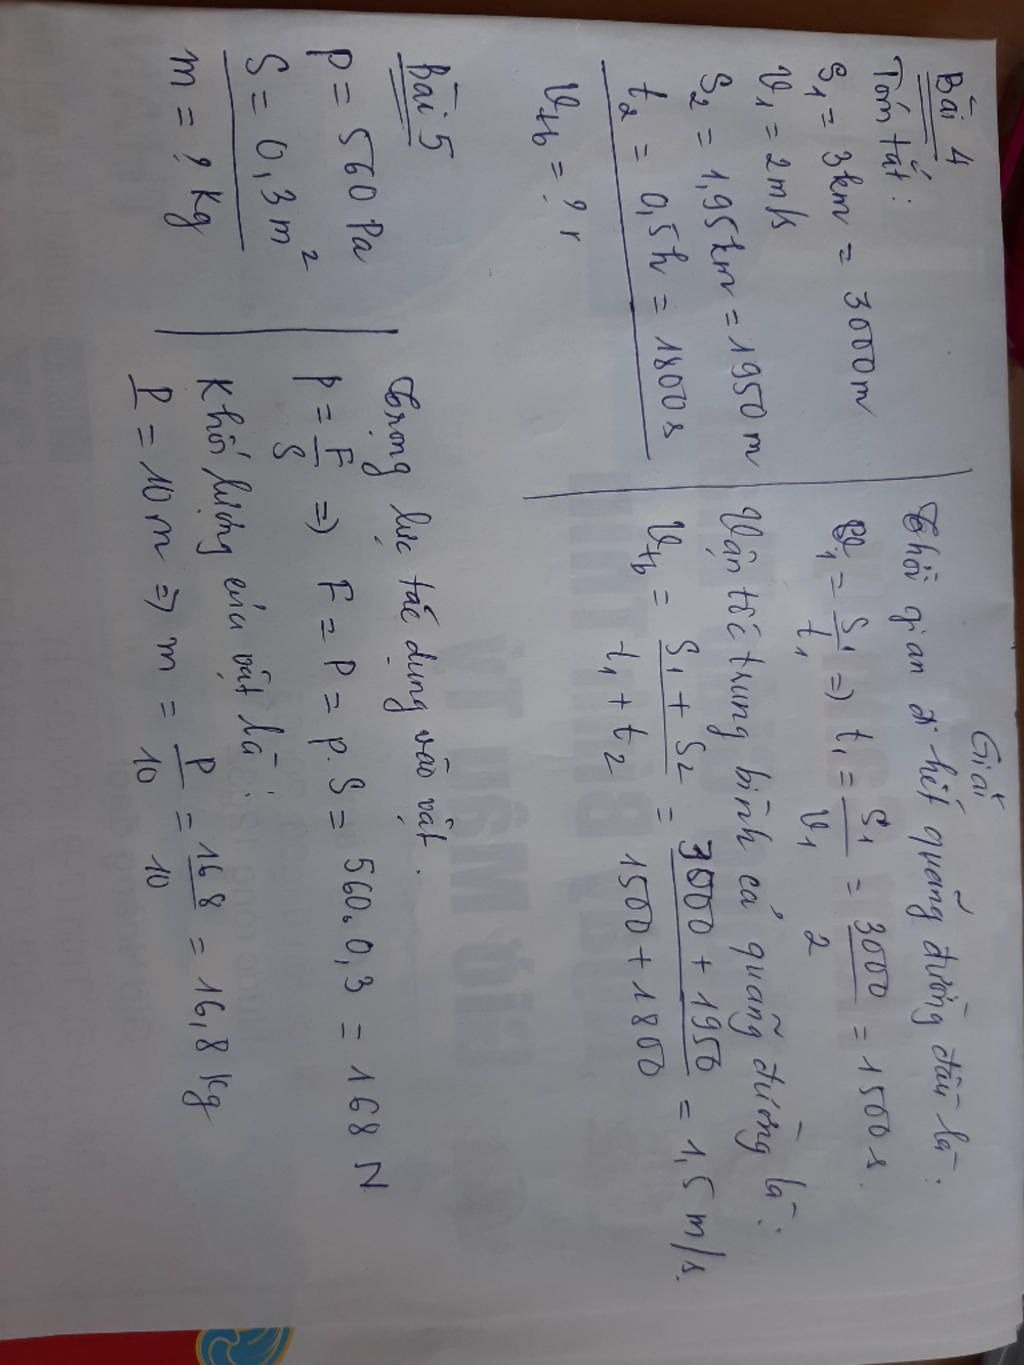 Bài 4
Tóm tắt:
S1 = 3km = 3000m
V1 = 2m/s
S2 = 1,95km = 1950m
t2 = 0,5h = 1800s
Vtb = ?
Giải
Thời gian đi hết quãng đường đầu là:
V1 = S1/t1 => t1 = S1/V1 = 3000/2 = 1500s.
Vận tốc trung bình cả quãng đường là:
Vtb = (S1 + S2)/(t1 + t2) = (3000 + 1950)/(1500 + 1800) = 1,5 m/s.
Bài 5
P = 560 Pa
S = 0,3 m²
m = ? Kg
Trọng lực tác dụng vào vật.
P = F/S => F = P = p.S = 560.0,3 = 168 N
Khối lượng của vật là:
P = 10m => m = P/10 = 168/10 = 16,8 kg